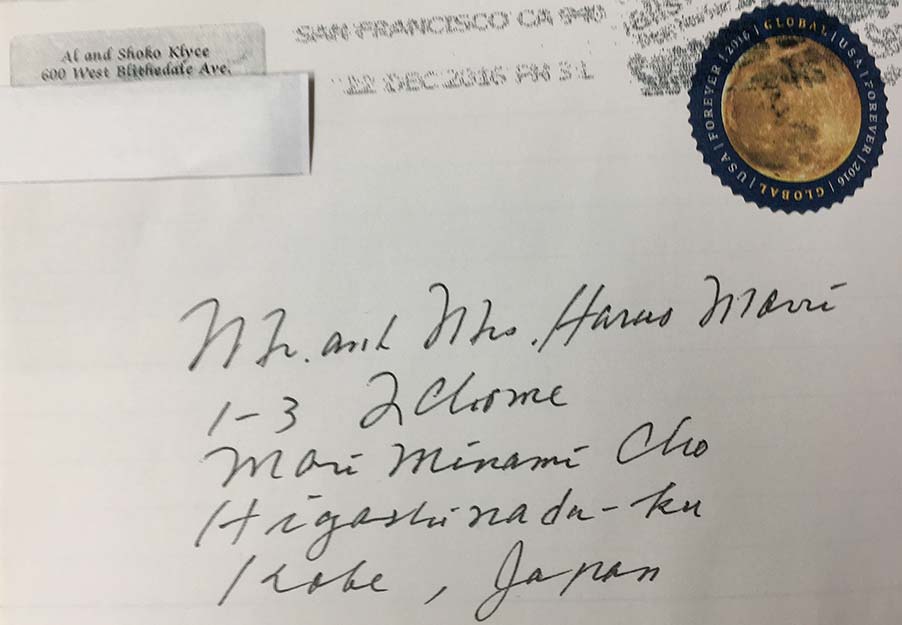 Al and Shoko Klyce
600 West Blithedale Ave.
SAN FRANCISCO CA 940
22 DEC 2016 PM 3 L
GLOBAL | USA | FOREVER | 2016 | GLOBAL | USA | FOREVER | 2016
Mr. and Mrs. Haruo Mori
1-3 2 Chome
Mori Minami Cho
Higashinada-ku
Kobe, Japan